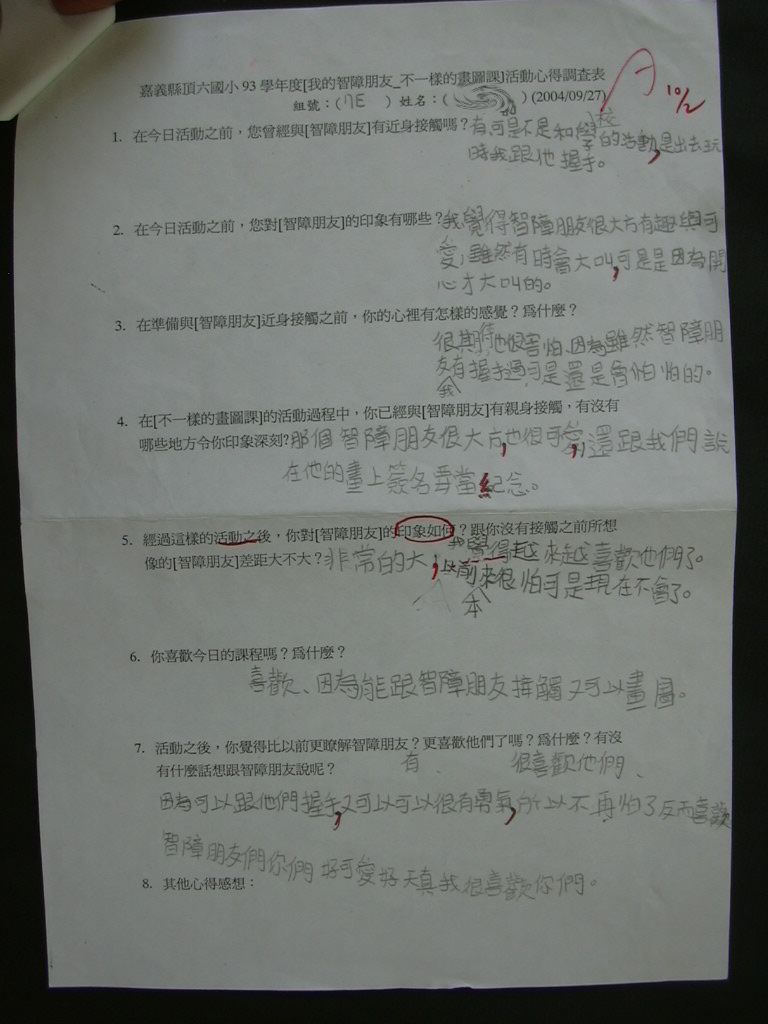 嘉義縣頂六國小93學年度[我的智障朋友_不一樣的畫圖課]活動心得調查表
組號：(7E) 姓名：( ) (2004/09/27)
A 10/2
1. 在今日活動之前，您曾經與[智障朋友]有近身接觸嗎？有可是不是和學校的活動,是出去玩
時我跟他握手。
2. 在今日活動之前，您對[智障朋友]的印象有哪些？我覺得智障朋友很大方有趣與可
愛,雖然有時會大叫,可是是因為開
心才大叫的。
3. 在準備與[智障朋友]近身接觸之前，你的心裡有怎樣的感覺？爲什麼？
很期待也很害怕、因為雖然智障朋
友有握手過可是我還是會怕怕的。
4. 在[不一樣的畫圖課]的活動過程中，你已經與[智障朋友]有親身接觸，有沒有
哪些地方令你印象深刻?那個智障朋友很大方,也很可愛,還跟我們說
在他的畫上簽名當紀念。
5. 經過這樣的活動之後，你對[智障朋友]的印象如何？跟你沒有接觸之前所想
像的[智障朋友]差距大不大？非常的大,我覺得越來越喜歡他們了。
以前本來很怕可是現在不會了。
6. 你喜歡今日的課程嗎？爲什麼？
喜歡、因為能跟智障朋友接觸又可以畫圖。
7. 活動之後，你覺得比以前更瞭解智障朋友？更喜歡他們了嗎？爲什麼？有沒
有什麼話想跟智障朋友說呢？ 有、 很喜歡他們、
因為可以跟他們握手,又可以可以很有勇氣,所以不再怕了反而喜歡
智障朋友們你們好可愛好天真我很喜歡你們。
8. 其他心得感想：